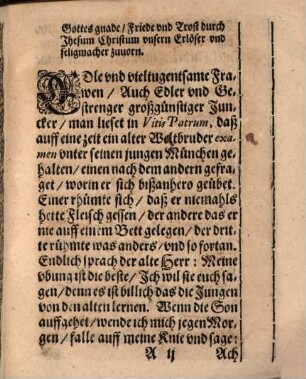 Gottes gnade / Friede vnd Trost durch
Jhesum Christum vnsern Erlöser vnd
seligmacher zuuorn.
EDle vnd vieltugentsame Fra-
wen / Auch Edler vnd Ge-
strenger großgünstiger Jun-
cker / man lieset in Vitis Patrum, daß
auff eine zeit ein alter Weltbruder exa-
men vnter seinen jungen München ge-
halten / einen nach dem andern gefra-
get / worin er sich bißanhero geübet.
Einer rhümte sich / daß er niemahls
hette Fleisch gessen / der andere das er
nie auff einem Bett gelegen / der drit-
te rühmte was anders / vnd so fortan.
Endlich sprach der alte Herr: Meine
vbung ist die beste / Ich wil sie euch sa-
gen / denn es ist billich das die Jungen
von den alten lernen. Wenn die Son
auffgehet / wende ich mich jegen Mor-
gen / falle auff meine Knie vnd sage:
A ij Ach